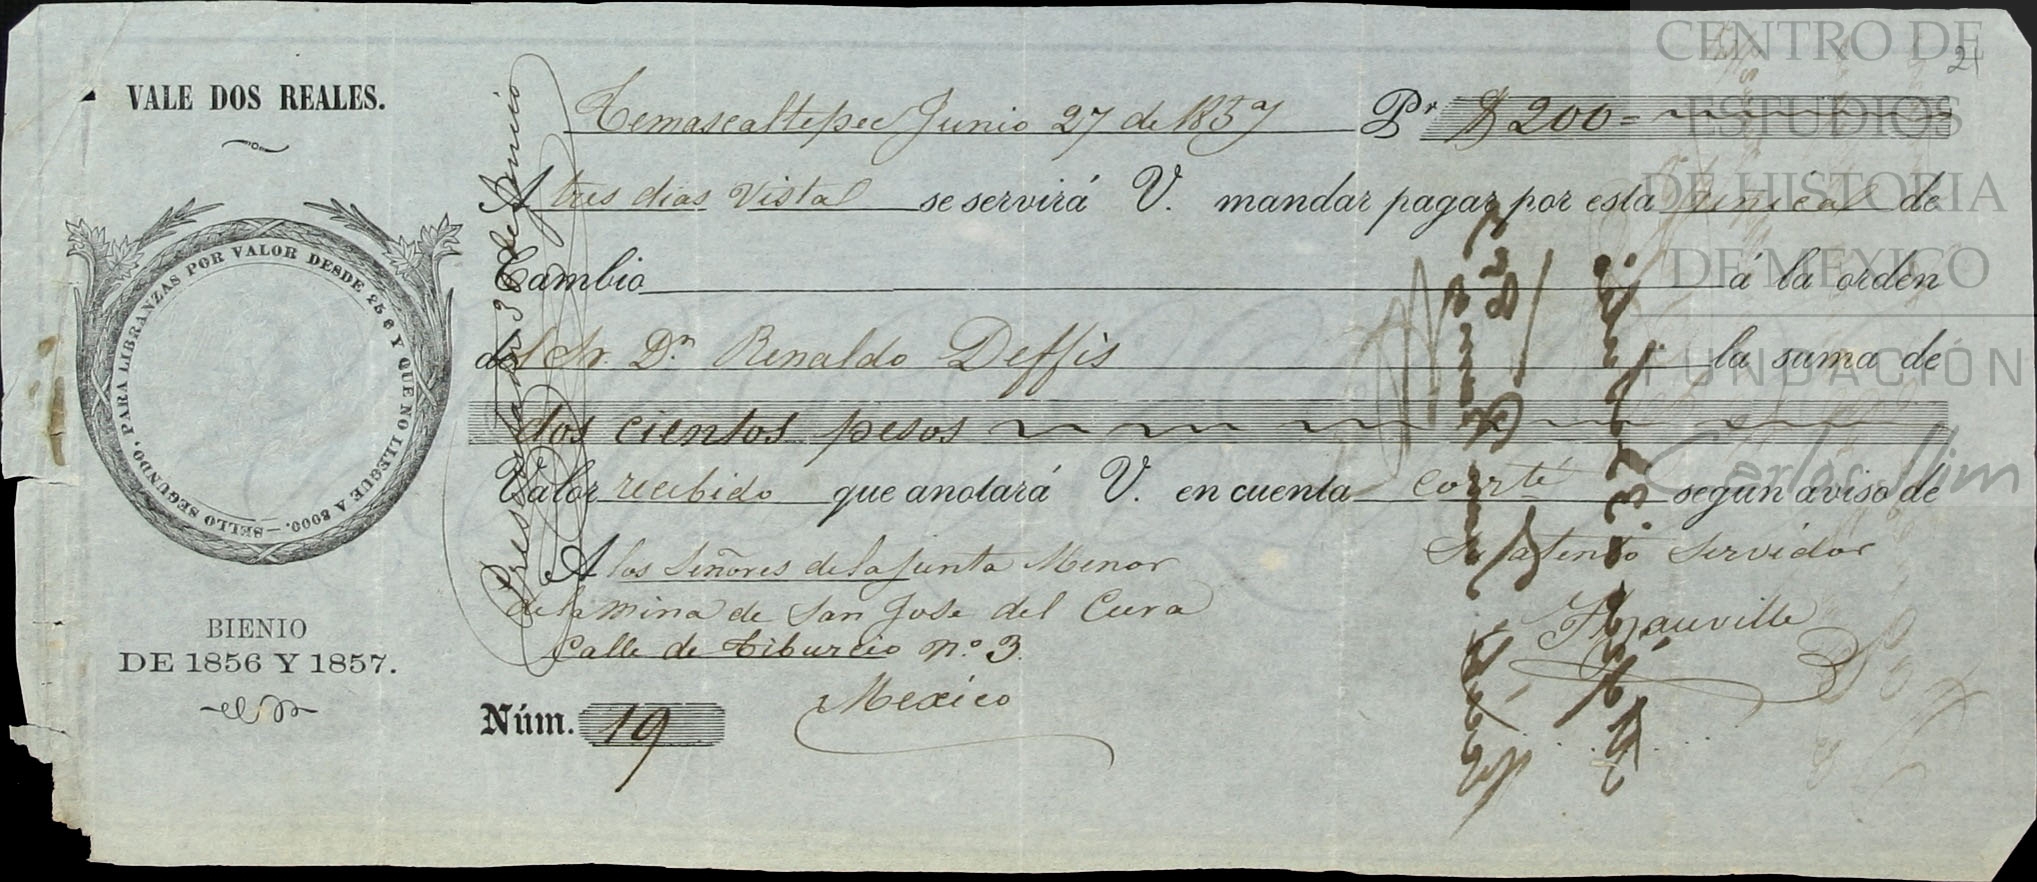 VALE DOS REALES.
PARA LIBRANZAS POR VALOR DESDE 25 $ Y QUE NO LLEGUE A 3000.—SELLO SEGUNDO,
BIENIO
DE 1856 Y 1857.
Temascaltepec Junio 27 de 1857 Pr $ 200=
A tres dias Vista se servirá V. mandar pagar por esta única de
Cambio á la orden
del Sr. Dn. Renaldo Deffis la suma de
dos cientos pesos
Valor recibido que anotará V. en cuenta corrte segun aviso de
A los Señores de la Junta Menor
de la Mina de San Jose del Cura
Calle de Tiburcio no. 3.
Mexico
Su atento Servidor
Núm. 19
Presentada 30 de Junio
21
CENTRO DE
ESTUDIOS
DE HISTORIA
DE MEXICO
FUNDACIÓN
Carlos Slim